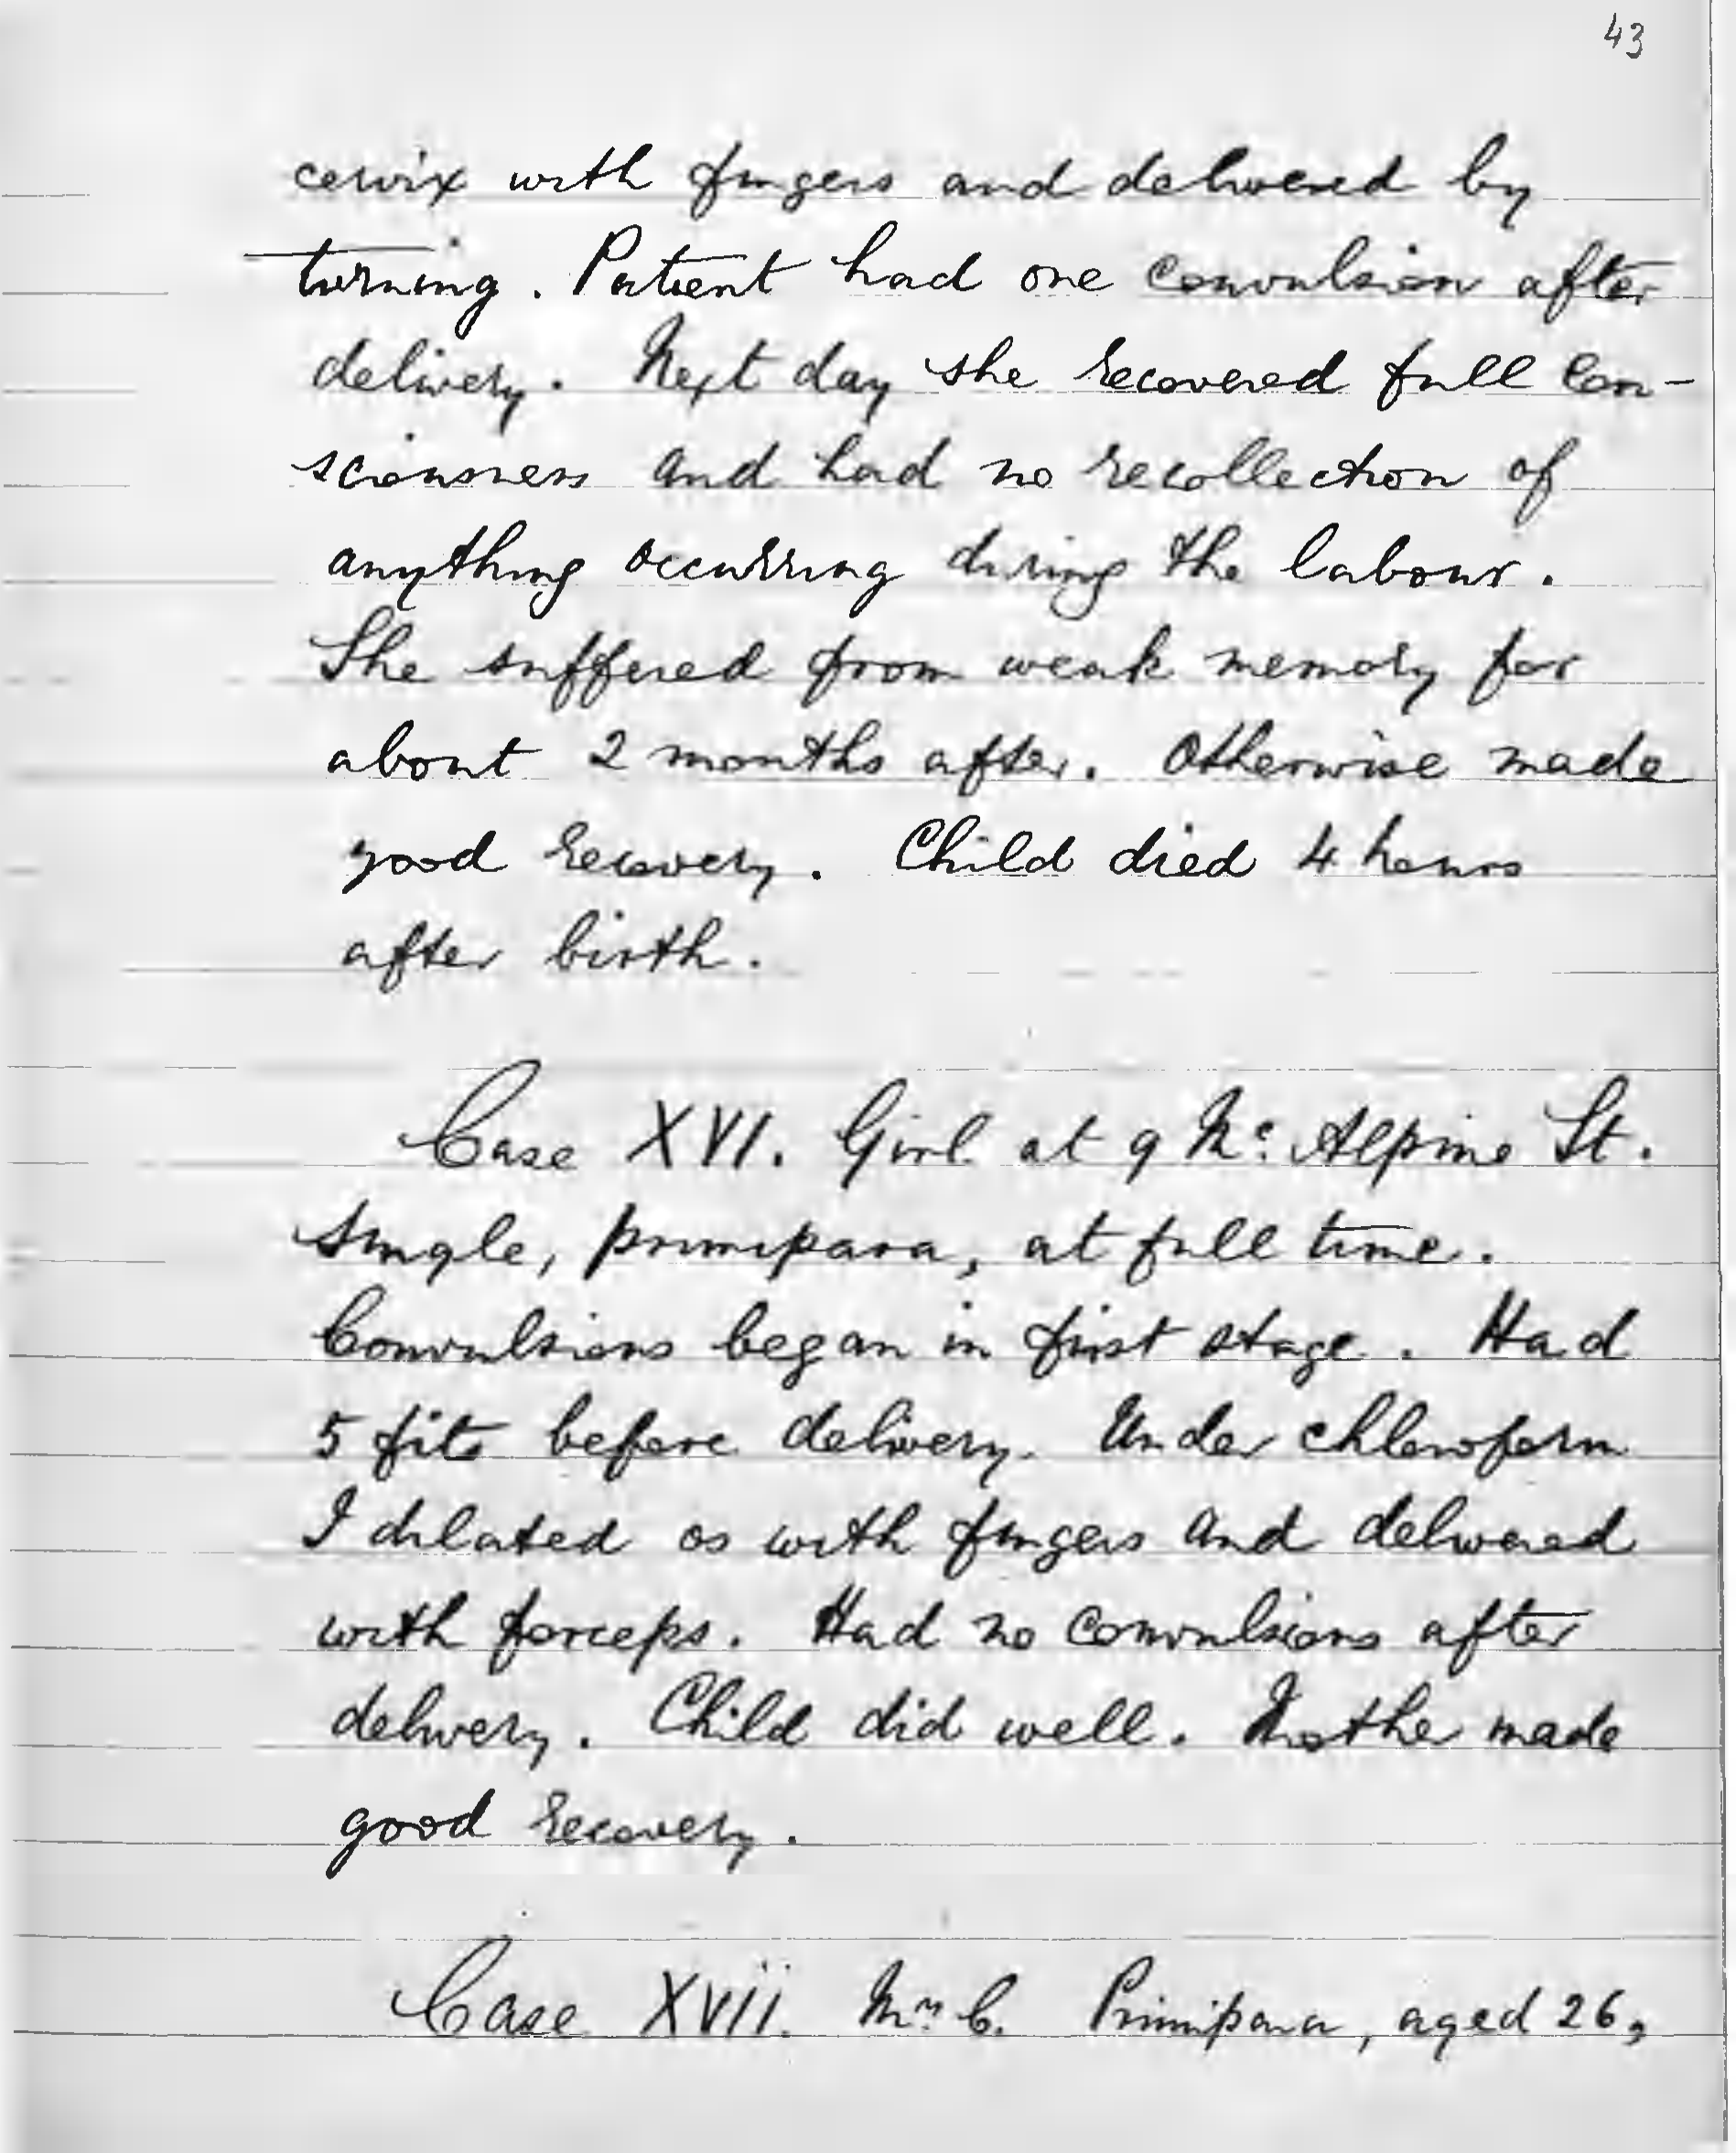 43
cervix with fingers and delivered by
turning. Patient had one convulsion after
delivery. Next day she recovered full con-
sciousness and had no recollection of
anything occurring during the labour.
She suffered from weak memory for
about 2 months after. Otherwise made
good recovery. Child died 4 hours
after birth.
Case XVI. Girl at 9 Mc. Alpine St.
Single, primipara, at full time.
Convulsions began in first stage. Had
5 fits before delivery. Under chloroform
I dilated os with fingers and delivered
with forceps. Had no convulsions after
delivery. Child did well. Mother made
good recovery.
Case XVII. Mrs C. Primipara, aged 26,